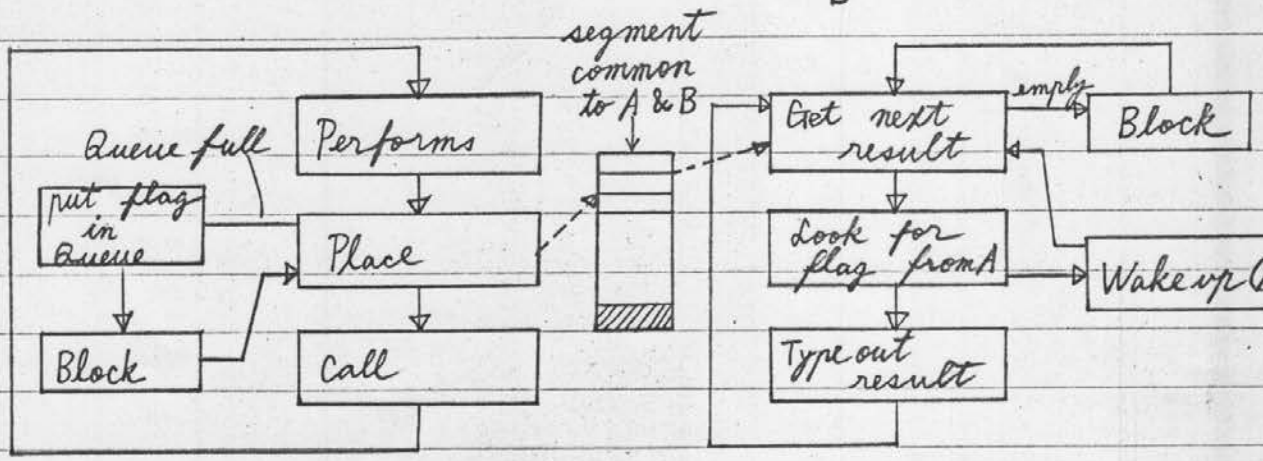 segment
common
to A & B
Queue full
Performs
put flag
in
Queue
Place
Block
Call
Get next
result
empty
Block
Look for
flag from A
Wake up
Type out
result